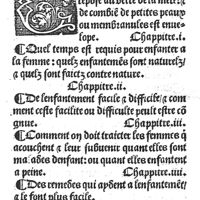 repose au ventre de la mere: &
de combiẽ de petites peaux
ou membranules est enue-
lope. Chappitre.i.
¶Quel temps est requis pour enfanter a
la femme: quelz enfantemẽs sont naturelz
& quelz sont faictz contre nature.
Chappitre.ii.
¶De lenfantement facile & difficile: & com
ment ceste facilite ou difficulte peult estre cõ
gnue. Chappitre.iii.
¶Comment on doit traicter les femmes q̃
acouchent & leur subuenir quant elles sont
malades denfant: ou quant elles enfantent
a peine. Chappitre.iiii.
¶Des remedes qui aydent a lenfantemẽt
& le font plus facile.